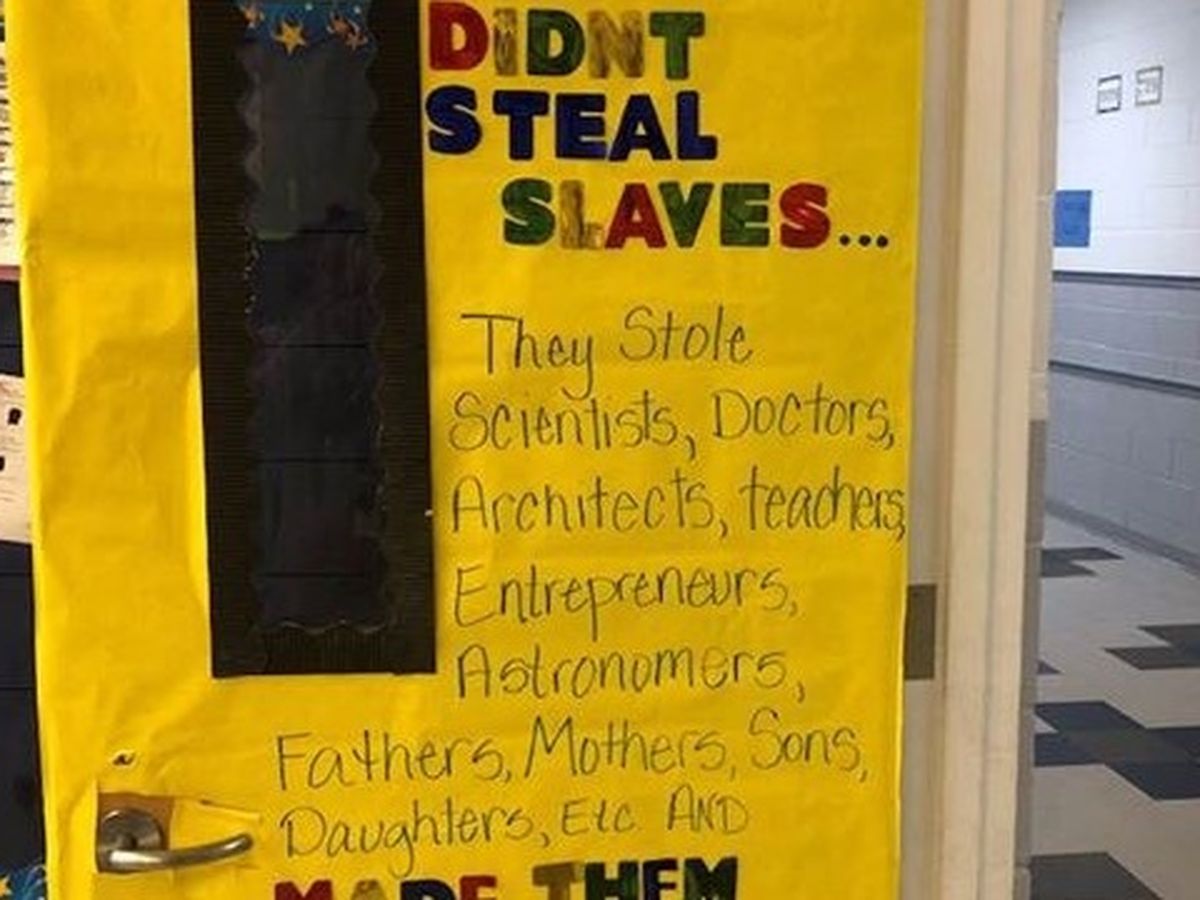 DiDNT
STEAL
SLAVES...
They Stole
Scientists, Doctors,
Architects, teachers,
Entrepreneurs,
Astronomers,
Fathers, Mothers, Sons,
Daughters, Etc AND
MADE THEM